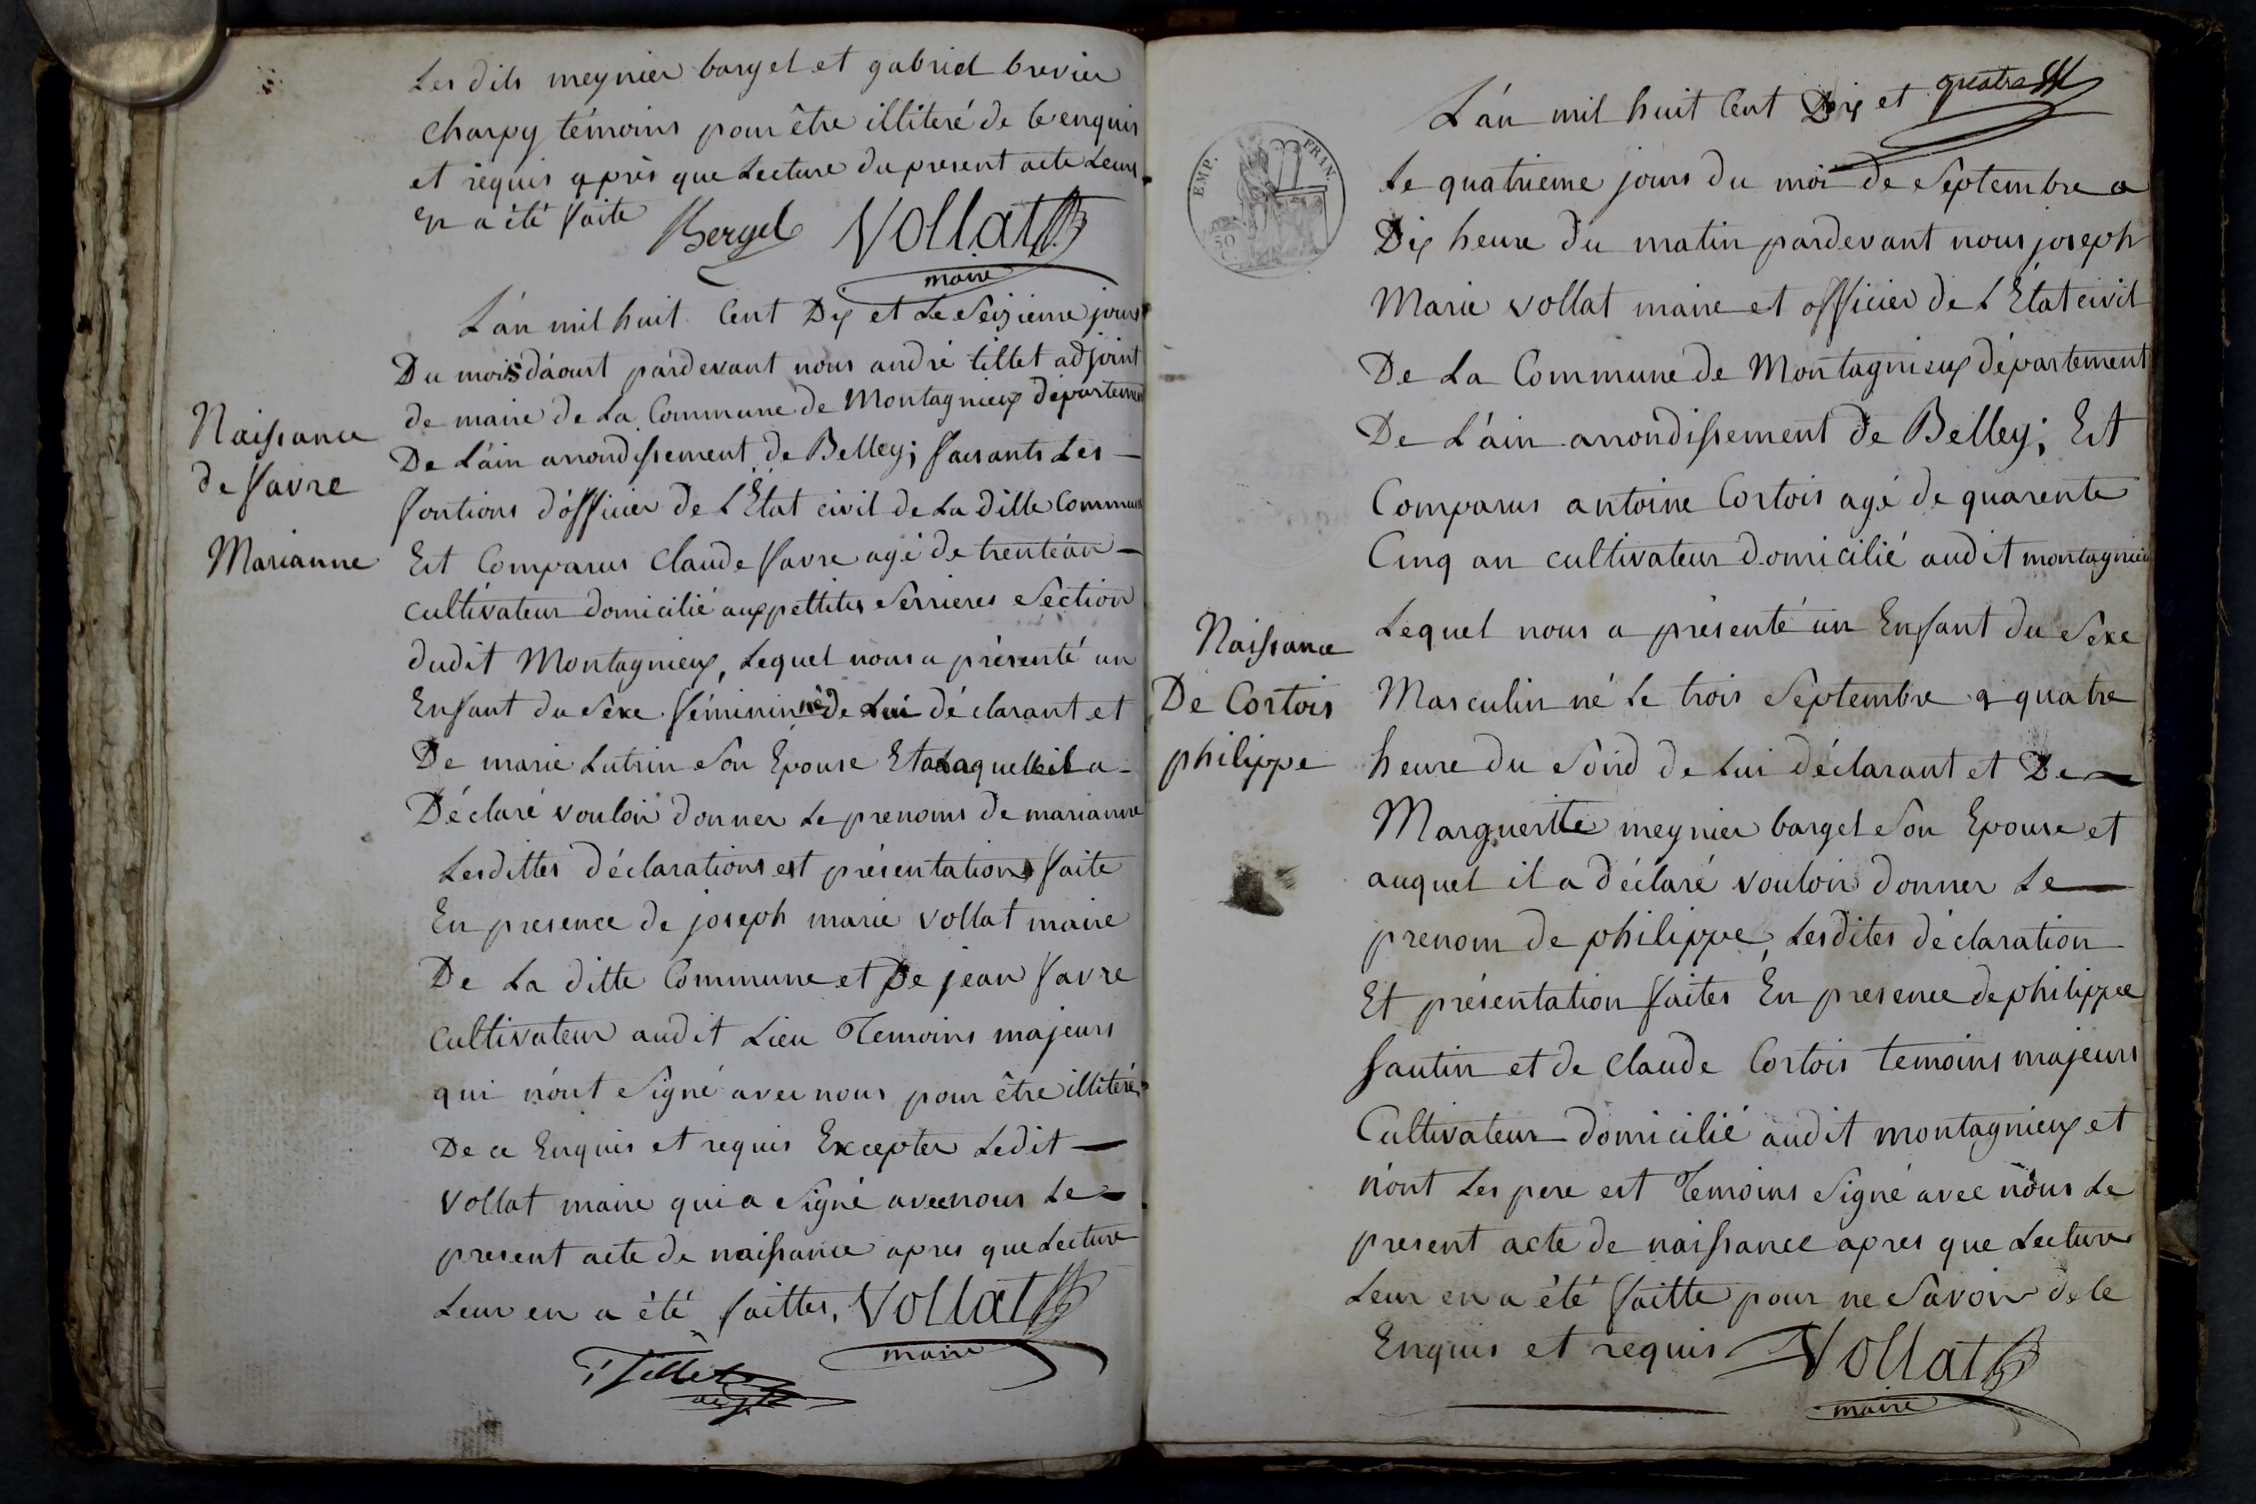 Lesdits meynier bargel et gabriel brevier
charpy témoins pour être illiteré de ce enquis
et requis après que Lecture du present acte Leur
en a été faite Bergel Vollat
maire
L'an mil huit Cent Dix et Le Seizieme jours
Du mois d'aoust pardevant nous andré tillet adjoint
de maire de La Commune de Montagnieux département
De L'ain arrondissement de Belley; faisants Les
fontions d'officier de L'État civil de La ditte Commune
Est Comparus Claude favre agé de trente an
cultivateur domicilié aux pettites Serrieres Section
dudit Montagnieux, Lequel nous a présenté un
Enfant du Sexe féminin né de Lui déclarant et
De marie Lutrin Son Épouse Et a Laquelle il a
Déclaré vouloir donner Le prenoms de marianne
Lesdittes déclarations et présentations faite
En presence de joseph marie vollat maire
De La ditte Commune et De jean favre
Cultivateur audit Lieu Temoins majeurs
qui n'ont Signé avec nous pour être illiteré
De ce Enquis et requis Excepter Ledit
vollat maire qui a Signé avec nous Le
present acte de naissance apres que Lecture
Leur en a été faittes, Vollat
maire
Tillet
Naissance
de favre
Marianne
EMP. FRAN.
50
L'an mil huit Cent Dix et quatre
Le quatrieme jours du moi de Septembre a
Dix heure du matin pardevant nous joseph
Marie vollat maire et officier de L'État civil
De La Commune de Montagnieux département
De L'ain arrondissement de Belley; Est
Comparus antoine Cortois agé de quarente
Cinq an cultivateur domicilié audit montagnieux
Lequel nous a présenté un Enfant du Sexe
Masculin né Le trois Septembre a quatre
heure du Soird de Lui déclarant et De
Margueritte meynier bargel Son Epouse et
auquel il a déclaré vouloir donner Le
prenom de philippe, Lesdites déclaration
Et présentation faites En presence de philippe
fautin et de Claude Cortois temoins majeurs
Cultivateur domicilié audit montagnieux et
n'ont Les pere est Temoins Signé avec nous Le
present acte de naissance apres que Lecture
Leur en a été faitte pour ne Savoir de ce
Enquis et requis Vollat
maire
Naissance
De Cortois
philippe